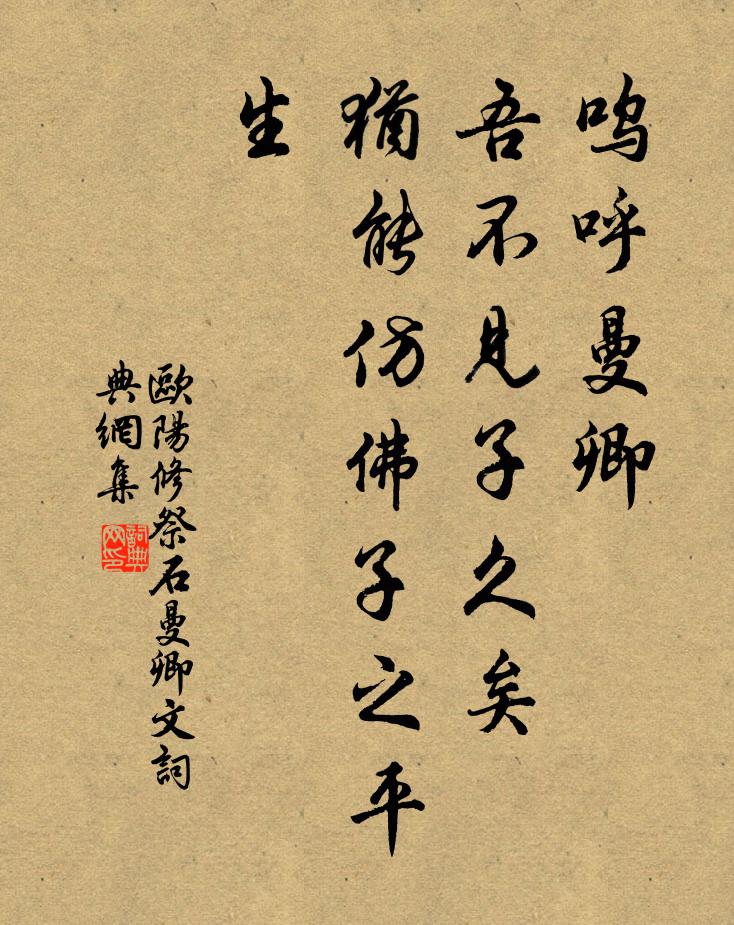 嗚呼曼卿
吾不見子久矣
猶能仿佛子之平
生
歐陽修祭石曼卿文詞
典網集
詞典
网印